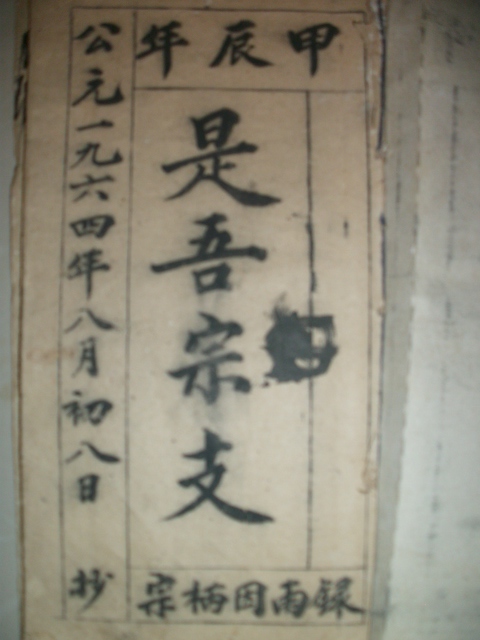 甲辰年
是吾宗支
公元一九六四年八月初八日 抄
録雨因柄宗